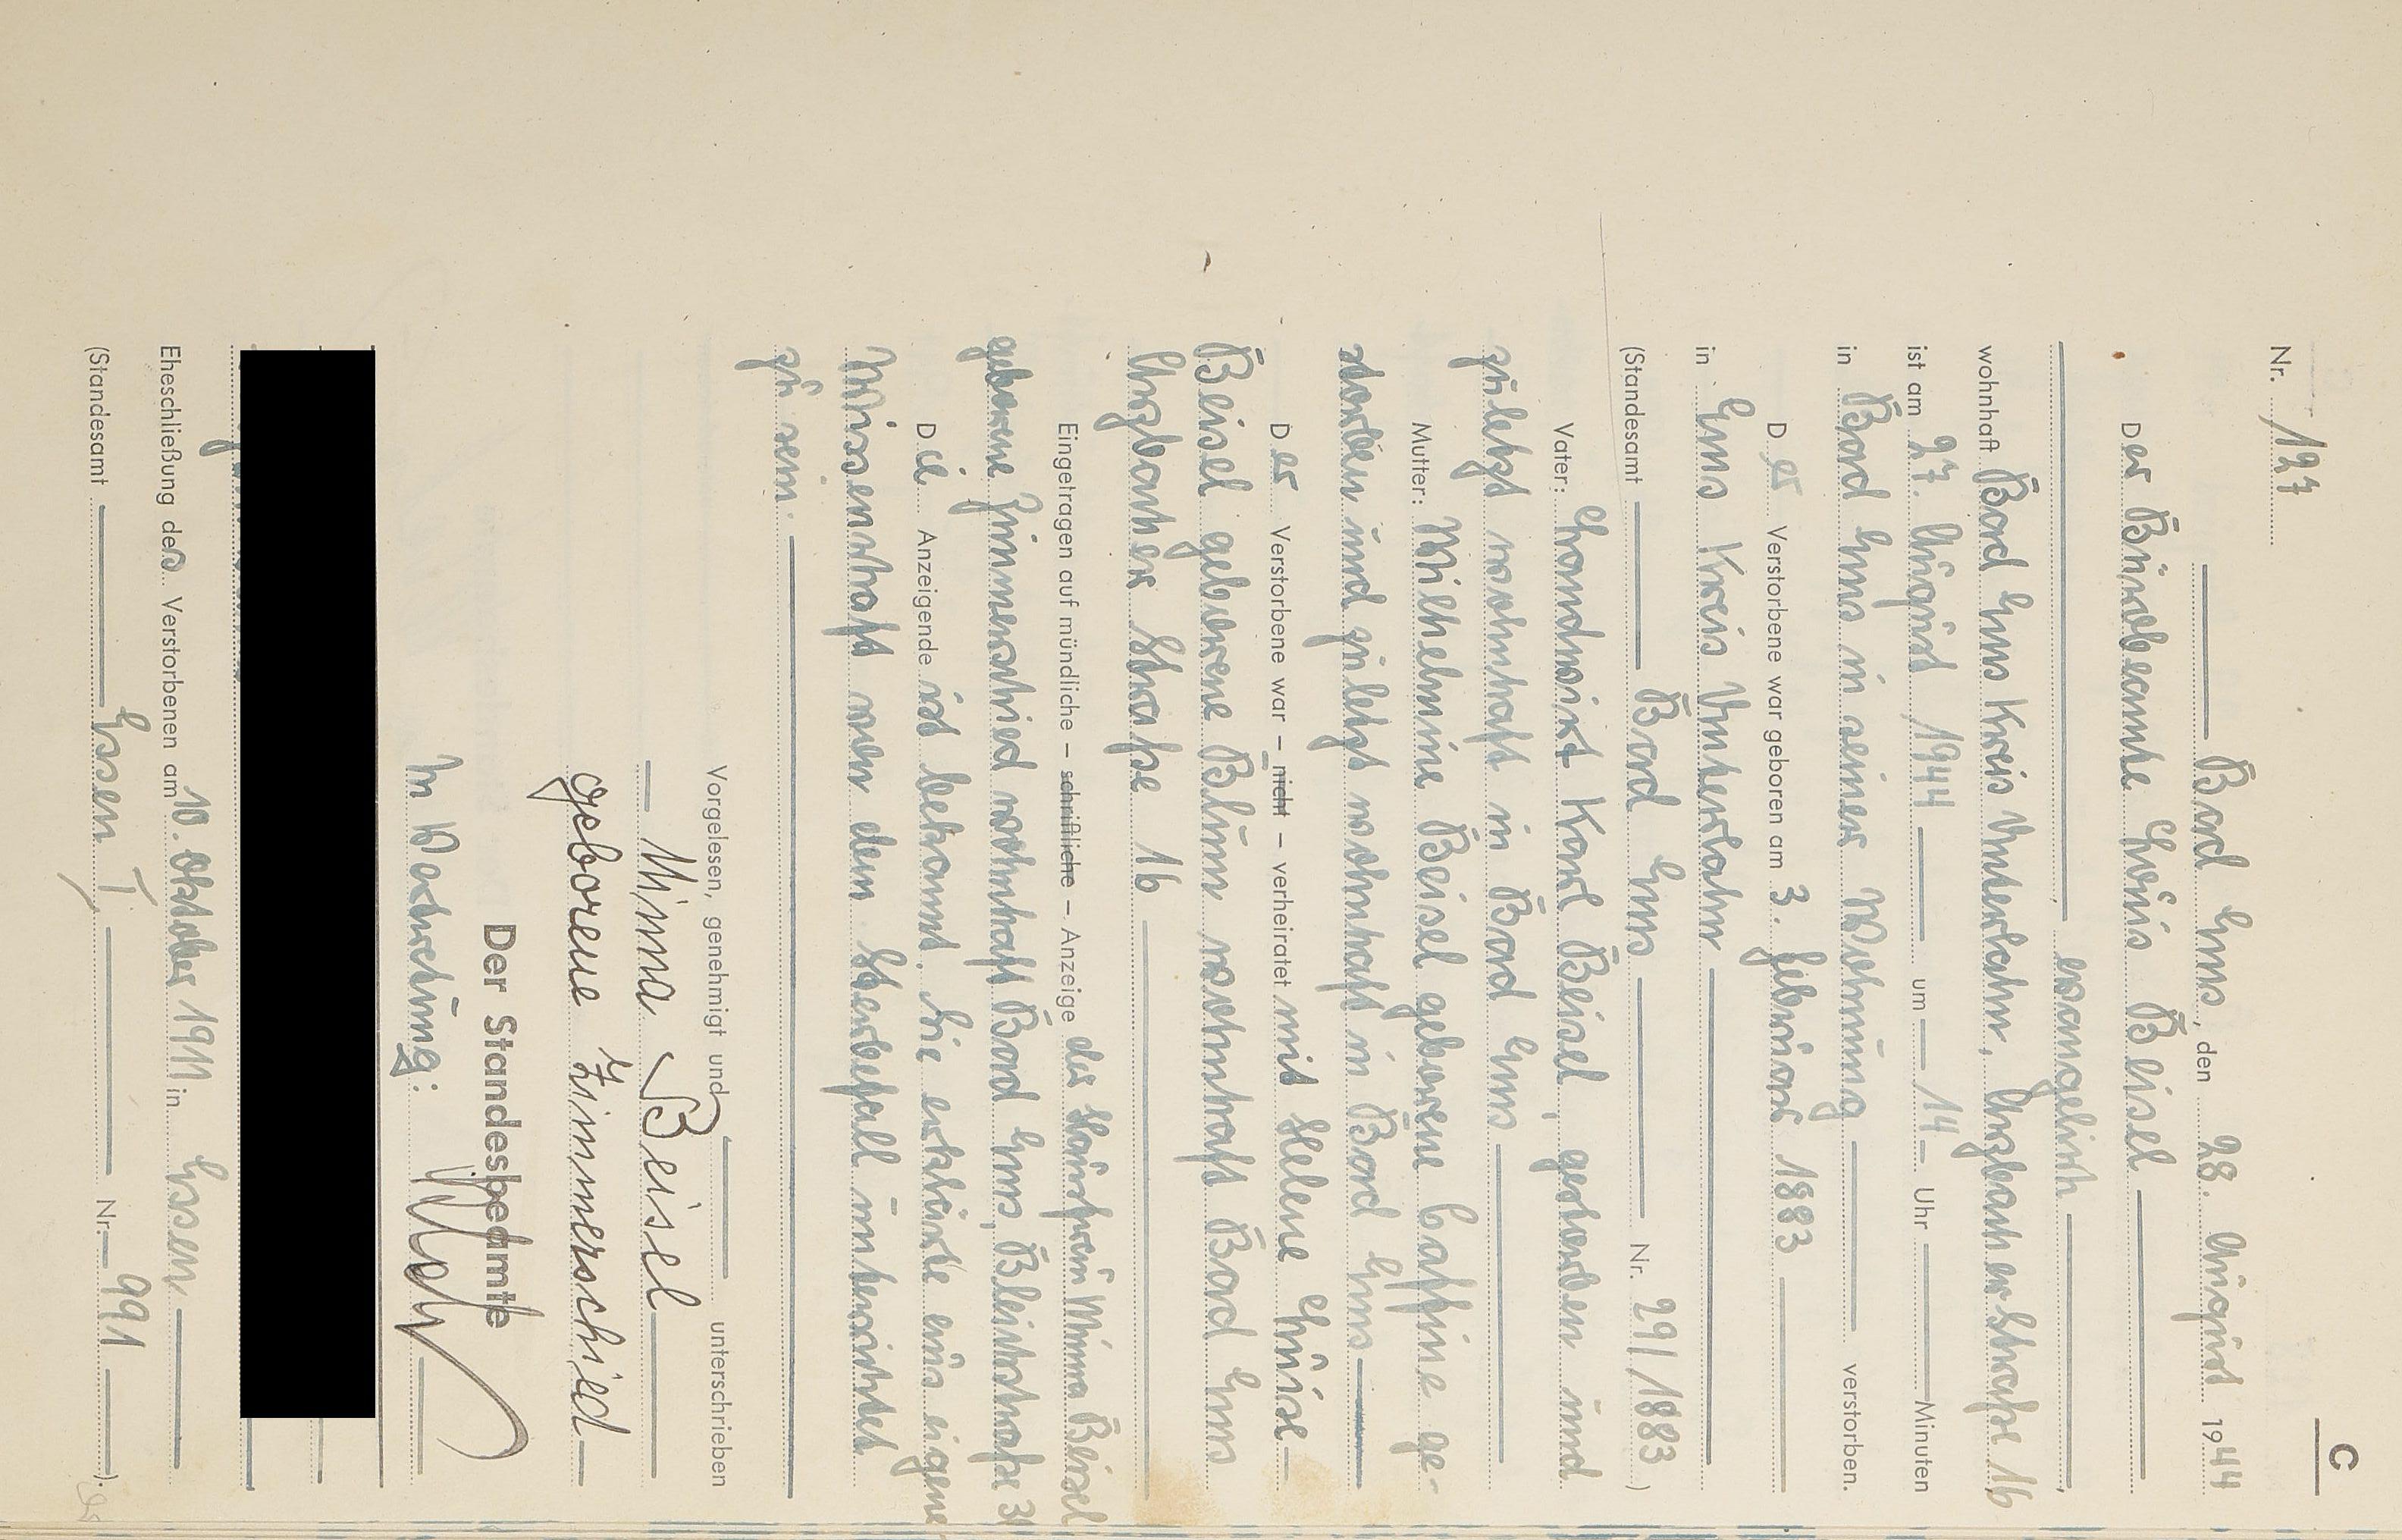 C
Nr. 127
Bad Ems, den 28. August 1944
Der Bürobeamte Louis Beisel
evangelisch
wohnhaft Bad Ems Kreis Unterlahn, Arzbacherstraße 16
ist am 27. August 1944 um 14 Uhr Minuten
in Bad Ems in seiner Wohnung verstorben.
Der Verstorbene war geboren am 3. Februar 1883
in Ems Kreis Unterlahn
(Standesamt Bad Ems Nr. 29/1883)
Vater: Landwirt Karl Beisel, gestorben und
zuletzt wohnhaft in Bad Ems
Mutter: Wilhelmine Beisel geborene ge-
storben und zuletzt wohnhaft in Bad Ems
Der Verstorbene war – nicht – verheiratet mit Helene Luise
Beisel geborene Blum wohnhaft Bad Ems
Arzbacher Straße 16
Eingetragen auf mündliche – schriftliche – Anzeige der Hausfrau Minna Beisel
geborene Zimmerschied wohnhaft Bad Ems, Bleichstraße 31
Die Anzeigende ist bekannt. Sie erklärte aus eigener
Wissenschaft von dem Sterbefall unterrichtet
zu sein.
Vorgelesen, genehmigt und unterschrieben
Minna Beisel
geborene Zimmerschied
Der Standesbeamte
In Vertretung:
Eheschließung des Verstorbenen am 10. Oktober 1911 in Essen
(Standesamt Essen I Nr. 991).